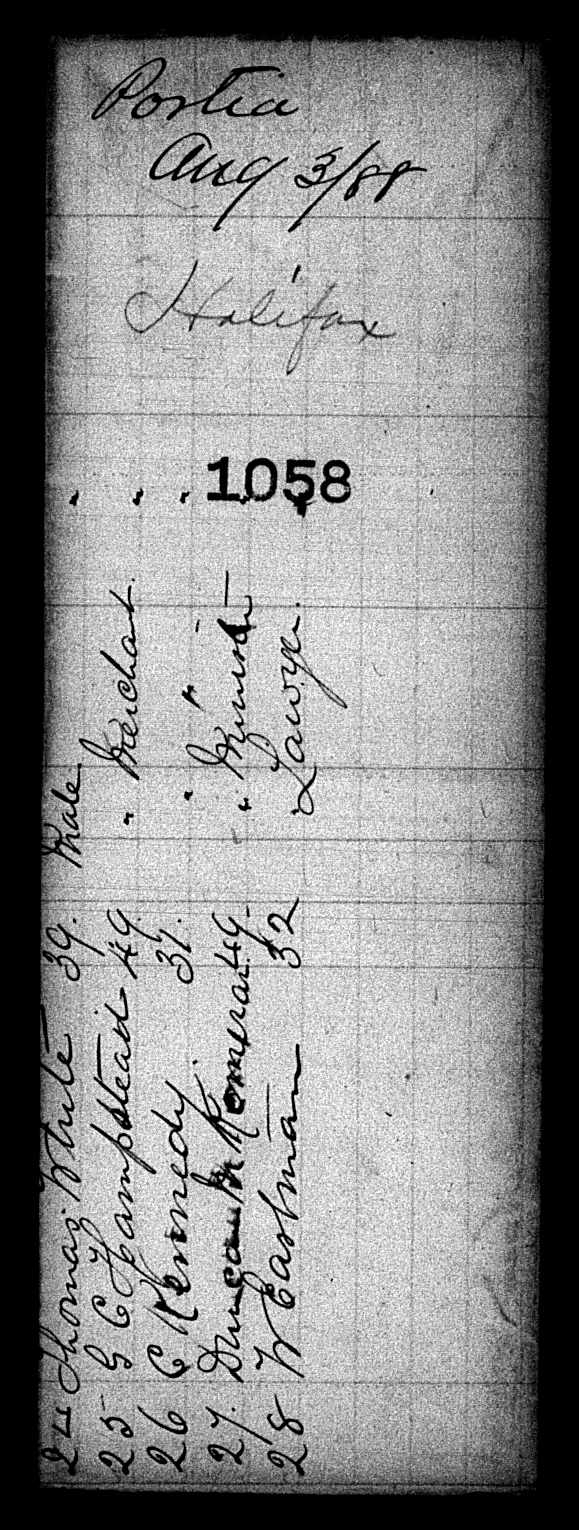 Portia
Aug 3/88
Halifax
1058
24 Thomas White 39. Male "
25 G C Hampstead 49 " Merchant. "
26 C Kennedy 37. " " "
27. Duncan 49 " Minister "
28 W Eastman 32 " Lawyer. "